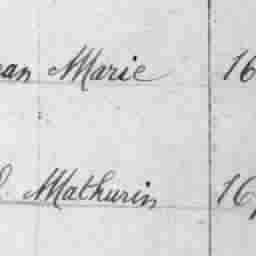 ean Marie 16
l Mathurin 16